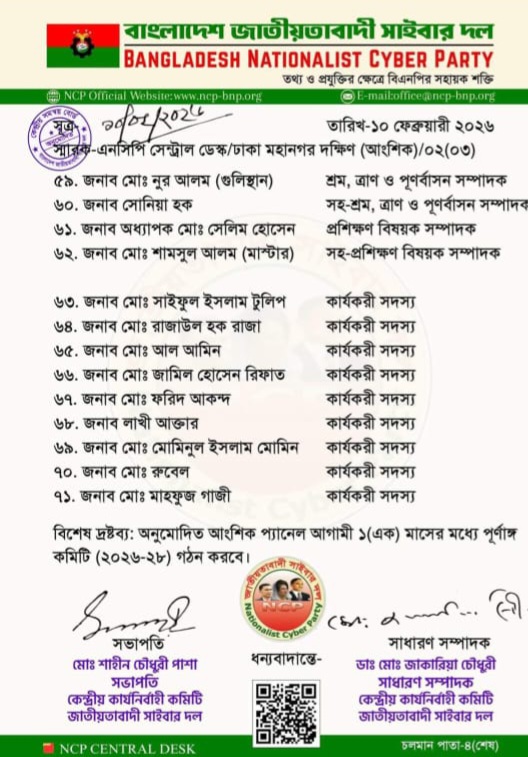 বাংলাদেশ জাতীয়তাবাদী সাইবার দল
BANGLADESH NATIONALIST CYBER PARTY
তথ্য ও প্রযুক্তির ক্ষেত্রে বিএনপির সহায়ক শক্তি
NCP Official Website:www.ncp-bnp.org E-mail:office@ncp-bnp.org
সূত্র- তারিখ-১০ ফেব্রুয়ারী ২০২৬
স্মারক-এনসিপি সেন্ট্রাল ডেস্ক/ঢাকা মহানগর দক্ষিণ (আংশিক)/০২(০৩)
৫৯. জনাব মোঃ নুর আলম (গুলিস্থান) শ্রম, ত্রাণ ও পূণর্বাসন সম্পাদক
৬০. জনাব সোনিয়া হক সহ-শ্রম, ত্রাণ ও পূণর্বাসন সম্পাদক
৬১. জনাব অধ্যাপক মোঃ সেলিম হোসেন প্রশিক্ষণ বিষয়ক সম্পাদক
৬২. জনাব মোঃ শামসুল আলম (মাস্টার) সহ-প্রশিক্ষণ বিষয়ক সম্পাদক
৬৩. জনাব মোঃ সাইফুল ইসলাম টুলিপ কার্যকরী সদস্য
৬৪. জনাব মোঃ রাজাউল হক রাজা কার্যকরী সদস্য
৬৫. জনাব মোঃ আল আমিন কার্যকরী সদস্য
৬৬. জনাব মোঃ জামিল হোসেন রিফাত কার্যকরী সদস্য
৬৭. জনাব মোঃ ফরিদ আকন্দ কার্যকরী সদস্য
৬৮. জনাব লাখী আক্তার কার্যকরী সদস্য
৬৯. জনাব মোঃ মোমিনুল ইসলাম মোমিন কার্যকরী সদস্য
৭০. জনাব মোঃ রুবেল কার্যকরী সদস্য
৭১. জনাব মোঃ মাহফুজ গাজী কার্যকরী সদস্য
বিশেষ দ্রষ্টব্য: অনুমোদিত আংশিক প্যানেল আগামী ১(এক) মাসের মধ্যে পূর্ণাঙ্গ
কমিটি (২০২৬-২৮) গঠন করবে।
জাতীয়তাবাদী সাইবার দল
NCP
Nationalist Cyber Party
সভাপতি
মোঃ শাহীন চৌধুরী পাশা
সভাপতি
কেন্দ্রীয় কার্যনির্বাহী কমিটি
জাতীয়তাবাদী সাইবার দল
ধন্যবাদান্তে-
সাধারণ সম্পাদক
ডাঃ মোঃ জাকারিয়া চৌধুরী
সাধারণ সম্পাদক
কেন্দ্রীয় কার্যনির্বাহী কমিটি
জাতীয়তাবাদী সাইবার দল
NCP CENTRAL DESK চলমান পাতা-৪(শেষ)